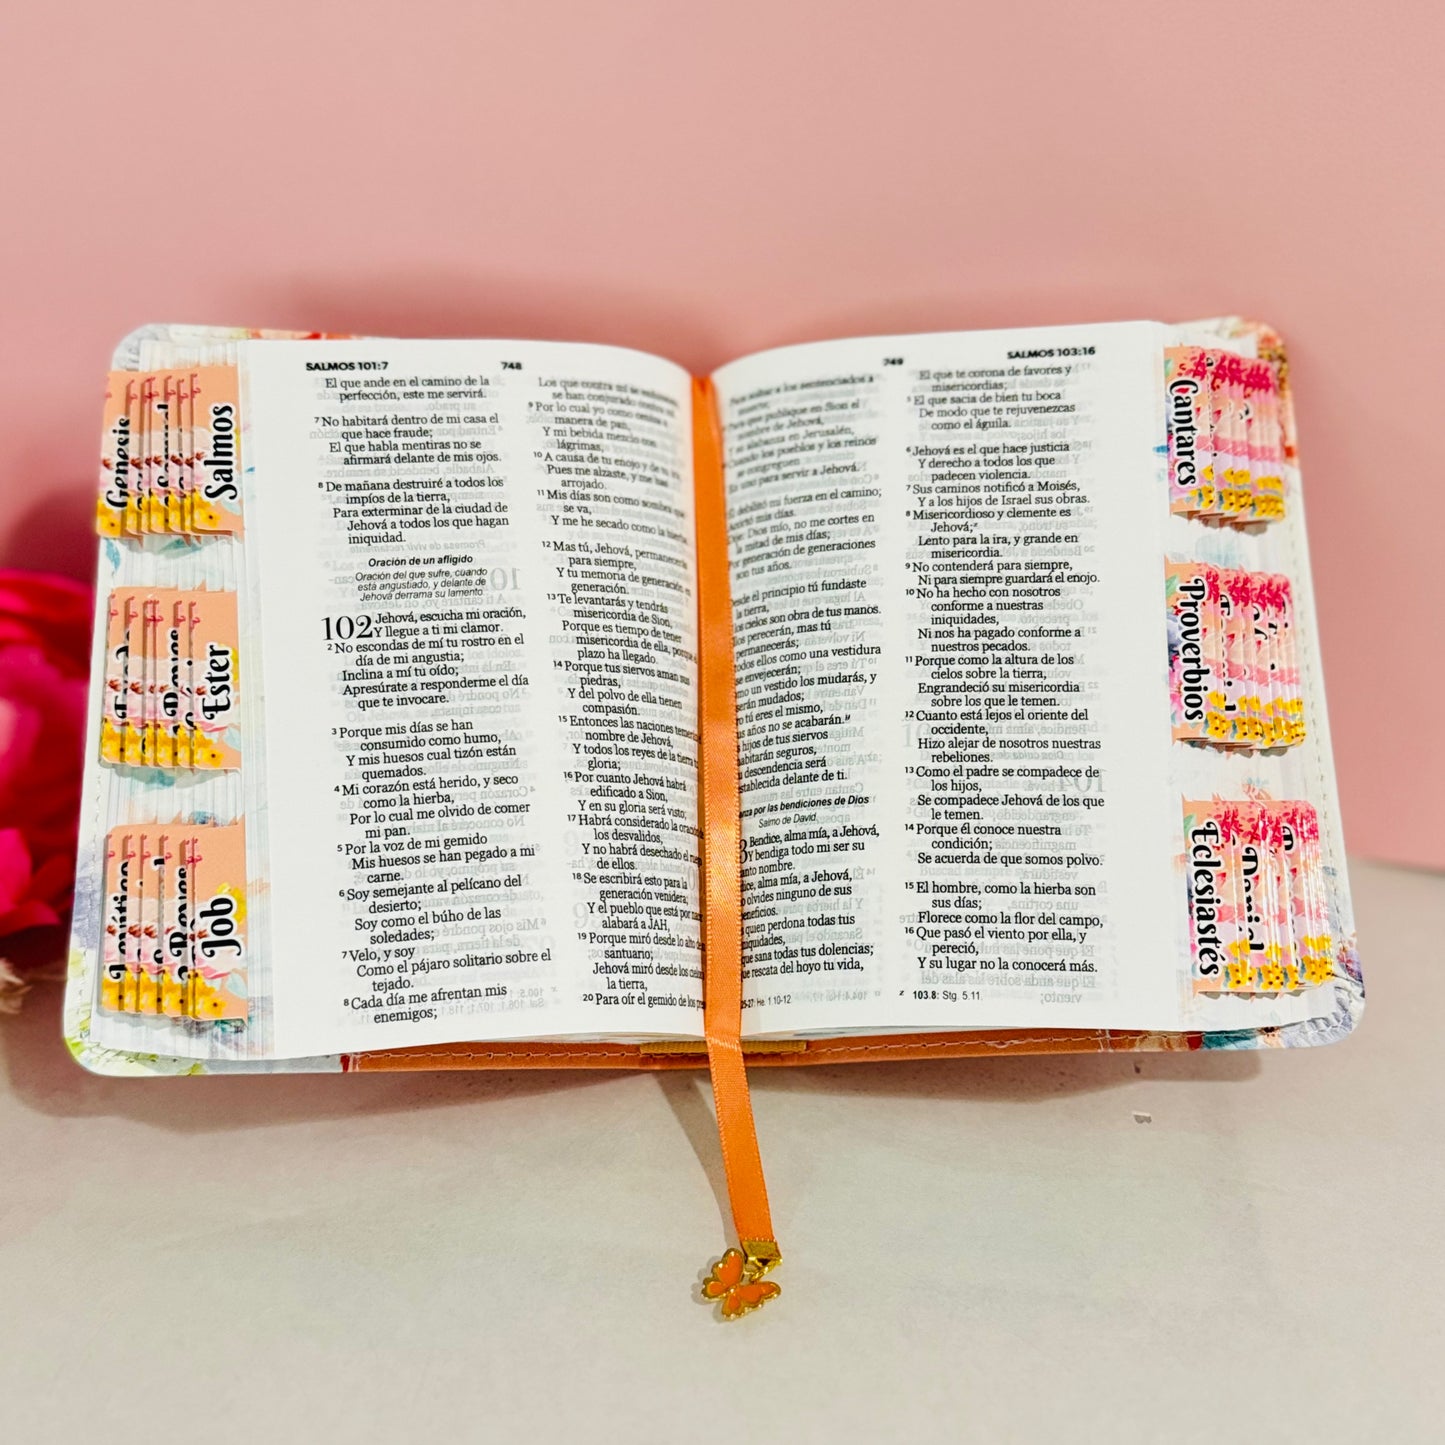 SALMOS 101:7
748
El que ande en el camino de la
perfección, este me servirá.
7 No habitará dentro de mi casa el
que hace fraude;
El que habla mentiras no se
afirmará delante de mis ojos.
8 De mañana destruiré a todos los
impíos de la tierra,
Para exterminar de la ciudad de
Jehová a todos los que hagan
iniquidad.
Oración de un afligido
Oración del que sufre, cuando
está angustiado, y delante de
Jehová derrama su lamento.
102 Jehová, escucha mi oración,
Y llegue a ti mi clamor.
2 No escondas de mí tu rostro en el
día de mi angustia;
Inclina a mí tu oído;
Apresúrate a responderme el día
que te invocare.
3 Porque mis días se han
consumido como humo,
Y mis huesos cual tizón están
quemados.
4 Mi corazón está herido, y seco
como la hierba,
Por lo cual me olvido de comer
mi pan.
5 Por la voz de mi gemido
Mis huesos se han pegado a mi
carne.
6 Soy semejante al pelícano del
desierto;
Soy como el búho de las
soledades;
7 Velo, y soy
Como el pájaro solitario sobre el
tejado.
8 Cada día me afrentan mis
enemigos;
Los que contra mí se
se han conjurado
9 Por lo cual yo como
manera de pan,
Y mi bebida mezclo con
lágrimas,
10 A causa de tu enojo y de tu
Pues me alzaste, y me has
arrojado.
11 Mis días son como sombra que
se va,
Y me he secado como la hierba.
12 Mas tú, Jehová, permanecerás
para siempre,
Y tu memoria de generación en
generación.
13 Te levantarás y tendrás
misericordia de Sion,
Porque es tiempo de tener
misericordia de ella, porque el
plazo ha llegado.
14 Porque tus siervos aman sus
piedras,
Y del polvo de ella tienen
compasión.
15 Entonces las naciones
nombre de Jehová,
Y todos los reyes de la tierra tu
gloria;
16 Por cuanto Jehová habrá
edificado a Sion,
Y en su gloria será visto;
17 Habrá considerado la oración de
los desvalidos,
Y no habrá desechado el ruego
de ellos.
18 Se escribirá esto para la
generación venidera;
Y el pueblo que está por
alabará a JAH,
19 Porque miró desde lo alto de
santuario;
Jehová miró desde los cielos
la tierra,
20 Para oír el gemido de los
749
SALMOS 103:16
Para soltar a los sentenciados a
muerte;
que publique en Sion el
nombre de Jehová,
su alabanza en Jerusalén,
Cuando los pueblos y los reinos
se congreguen
En uno para servir a Jehová.
debilitó mi fuerza en el camino;
Acortó mis días.
Dije: Dios mío, no me cortes en
la mitad de mis días;
Por generación de generaciones
son tus años.
Desde el principio tú fundaste
la tierra,
los cielos son obra de tus manos.
perecerán, mas tú
permanecerás;
todos ellos como una vestidura
se envejecerán;
como un vestido los mudarás, y
serán mudados;
tú eres el mismo,
tus años no se acabarán.
hijos de tus siervos
habitarán seguros,
su descendencia será
establecida delante de ti.
por las bendiciones de Dios
Salmo de David.
Bendice, alma mía, a Jehová,
Y bendiga todo mi ser su
santo nombre.
alma mía, a Jehová,
olvides ninguno de sus
beneficios.
quien perdona todas tus
iniquidades,
que sana todas tus dolencias;
que rescata del hoyo tu vida,
He 1.10-12
El que te corona de favores y
misericordias;
5 El que sacia de bien tu boca
De modo que te rejuvenezcas
como el águila.
6 Jehová es el que hace justicia
Y derecho a todos los que
padecen violencia.
7 Sus caminos notificó a Moisés,
Y a los hijos de Israel sus obras.
8 Misericordioso y clemente es
Jehová;z
Lento para la ira, y grande en
misericordia.
9 No contenderá para siempre,
Ni para siempre guardará el enojo.
10 No ha hecho con nosotros
conforme a nuestras
iniquidades,
Ni nos ha pagado conforme a
nuestros pecados.
11 Porque como la altura de los
cielos sobre la tierra,
Engrandeció su misericordia
sobre los que le temen.
12 Cuanto está lejos el oriente del
occidente,
Hizo alejar de nosotros nuestras
rebeliones.
13 Como el padre se compadece de
los hijos,
Se compadece Jehová de los que
le temen.
14 Porque él conoce nuestra
condición;
Se acuerda de que somos polvo.
15 El hombre, como la hierba son
sus días;
Florece como la flor del campo,
16 Que pasó el viento por ella, y
pereció,
Y su lugar no la conocerá más.
z 103.8: Stg. 5.11.
Génesis
Salmos
Ester
Job
Cantares
Proverbios
Eclesiastés
Daniel